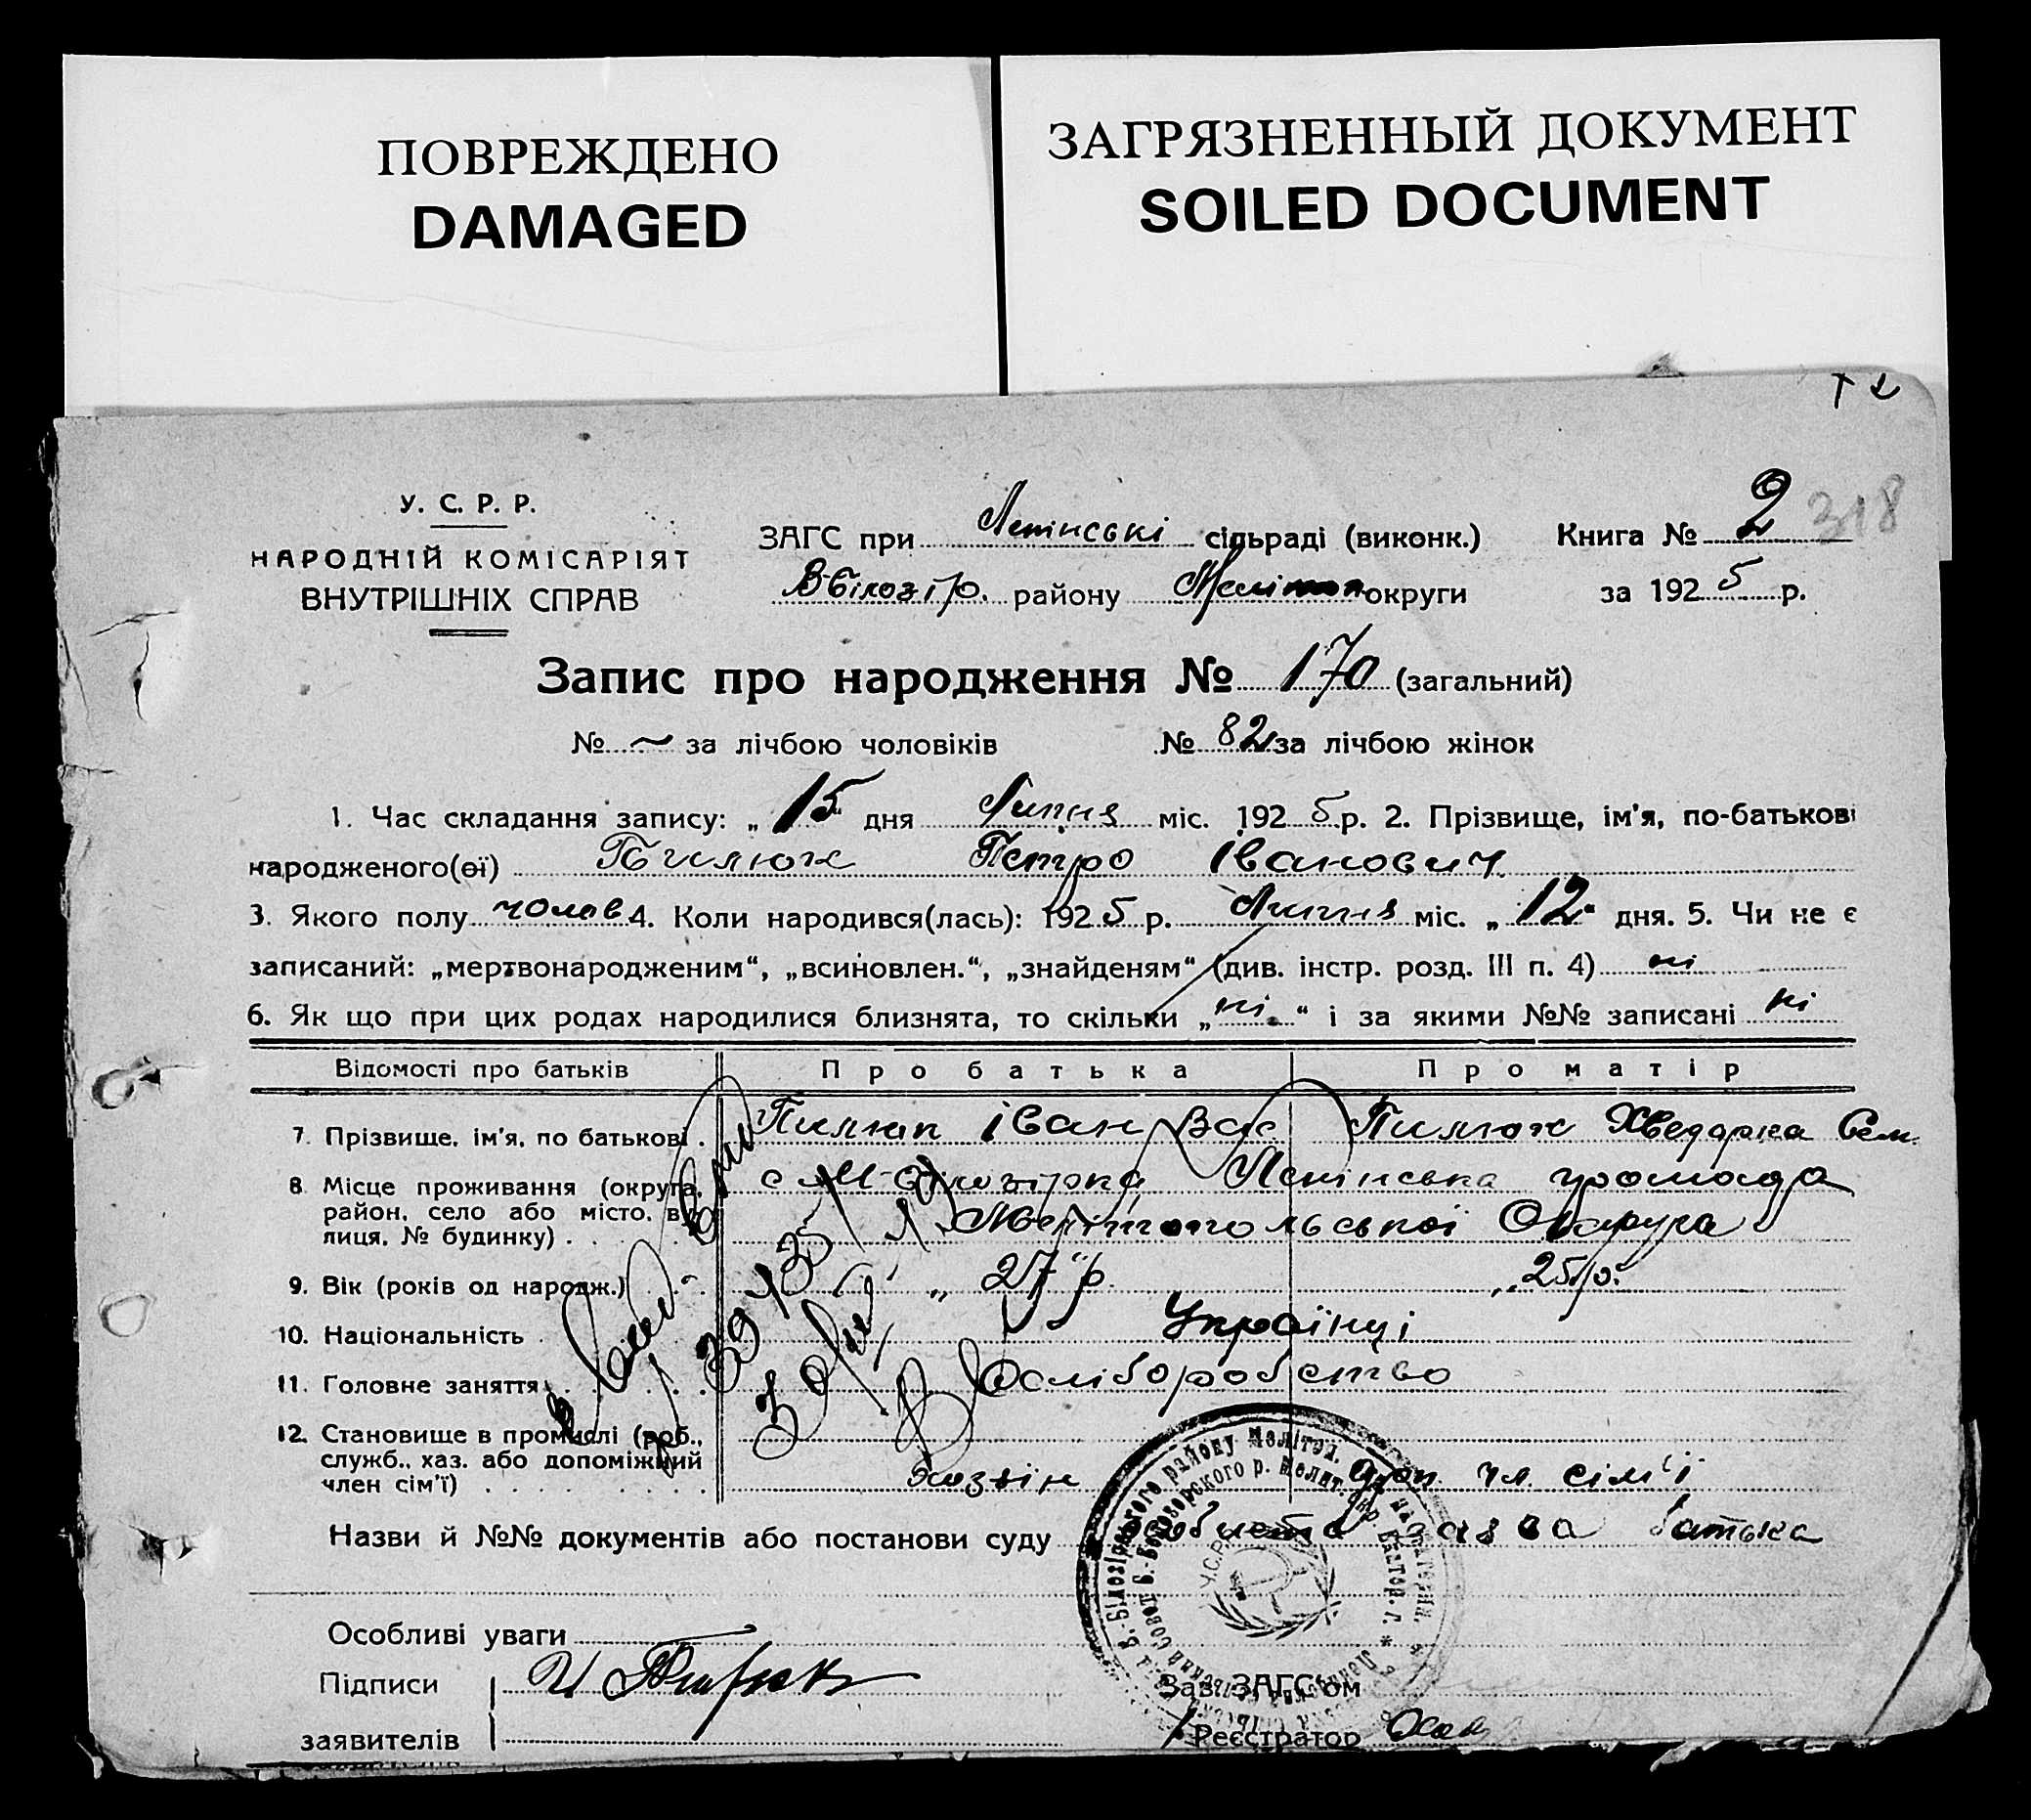 ПОВРЕЖДЕНО
DAMAGED
ЗАГРЯЗНЕННЫЙ ДОКУМЕНТ
SOILED DOCUMENT
У. С. Р. Р.
НАРОДНІЙ КОМІСАРІЯТ
ВНУТРІШНІХ СПРАВ
ЗАГС при Ленінські сільраді (виконк.) Книга № 2 318
В-Білозір. району Меліт округи за 1925 р.
Запис про народження № 170 (загальний)
№ ~ за лічбою чоловіків № 82 за лічбою жінок
1. Час складання запису: „15" дня Липня міс. 1925 р. 2. Прізвище, ім'я, по-батькові
народженого(ої) Пилюк Петро Іванович
3. Якого полу чолов. 4. Коли народився(лась): 1925 р. Липня міс. „12" дня. 5. Чи не є
записаний: „мертвонародженим“, „всиновлен.“, „знайденям“ (див. інстр. розд. III п. 4) ні
6. Як що при цих родах народилися близнята, то скільки „ні“ і за якими №№ записані ні
Відомості про батьків Про батька Про матір
7. Прізвище, ім'я, по батькові Пилюк Іван Вас Пилюк Хведорка Сем.
8. Місце проживання (округа, район, село або місто, вулиця, № будинку) с М-Білозірка Ленінська громада
Мелітопольської Округа
9. Вік (років од народж.) „27 р. „25 р.
10. Національність Українці
11. Головне заняття Хліборобство
12. Становище в промислі (роб., служб., хаз. або допоміжний член сім'ї) хозяін доп. чл. сім'ї
Назви й №№ документів або постанови суду особиста заява батька
Особливі уваги
Підписи
заявителів
Зав. ЗАГС'ом
Реєстратор